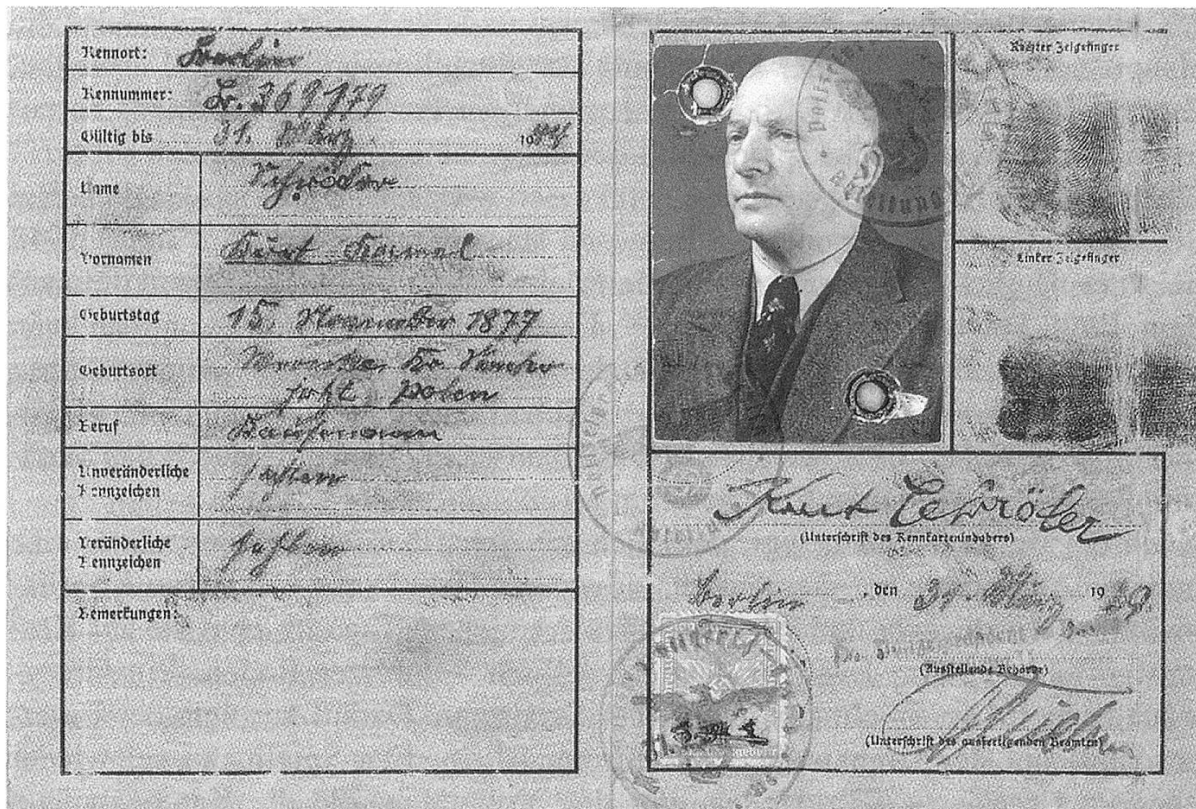 Kennort: Berlin
Kennummer: Br. 369179
Gültig bis 31. März 1944
Name Schröder
Vornamen Kurt
Geburtstag 15. November 1877
Geburtsort
jetzt Polen
Beruf Kaufmann
Unveränderliche Kennzeichen fehlen
Veränderliche Kennzeichen fehlen
Bemerkungen:
Rechter Zeigefinger
Linker Zeigefinger
Kurt Schröder
(Unterschrift des Kennkarteninhabers)
Berlin, den 31. März 1939
(Ausstellende Behörde)
(Unterschrift des ausfertigenden Beamten)